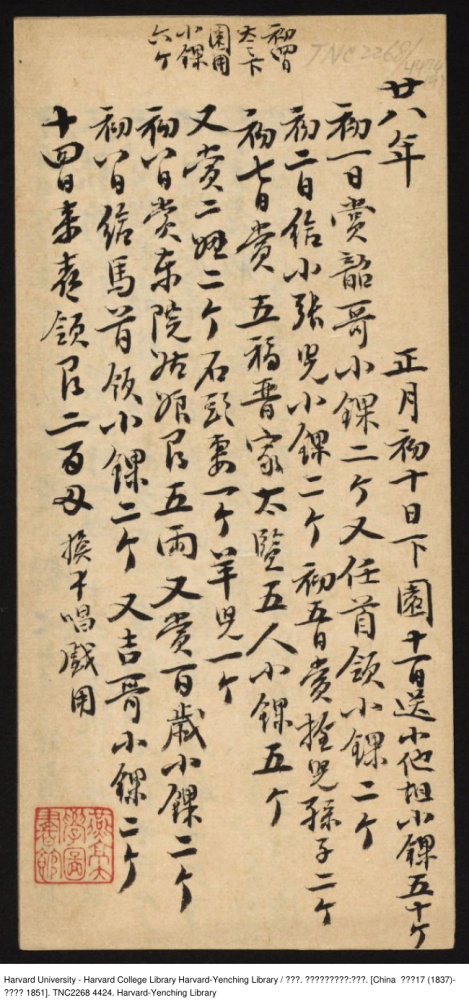 初四日
太太下
園用
小錁
六个
TNC 2268/4424
廿八年 正月初十日下園 十一日送小他坦小錁五十个
初一日賞韶哥小錁二个 又任首領小錁二个
初二日給小張児小錁二个 初五日賞拴児孫子二个
初七日賞五福晋家太監五人小錁五个
又賞二妞二个 石頭妻一个 羊児一个
初八日賞东院姑娘艮五両 又賞百歲小錁二个
初八日給馬首領小錁二个 又吉哥小錁二个
十四日来喜領艮二百両 換个唱戲用
燕京大
學圖
書館
Harvard University - Harvard College Library Harvard-Yenching Library / ???. ?????????:???. [China ???17 (1837)-
???? 1851]. TNC2268 4424. Harvard-Yenching Library